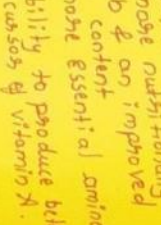 more nutritionally
& an improved
content
more essential amino
bility to produce bet
cursor of vitamin A.